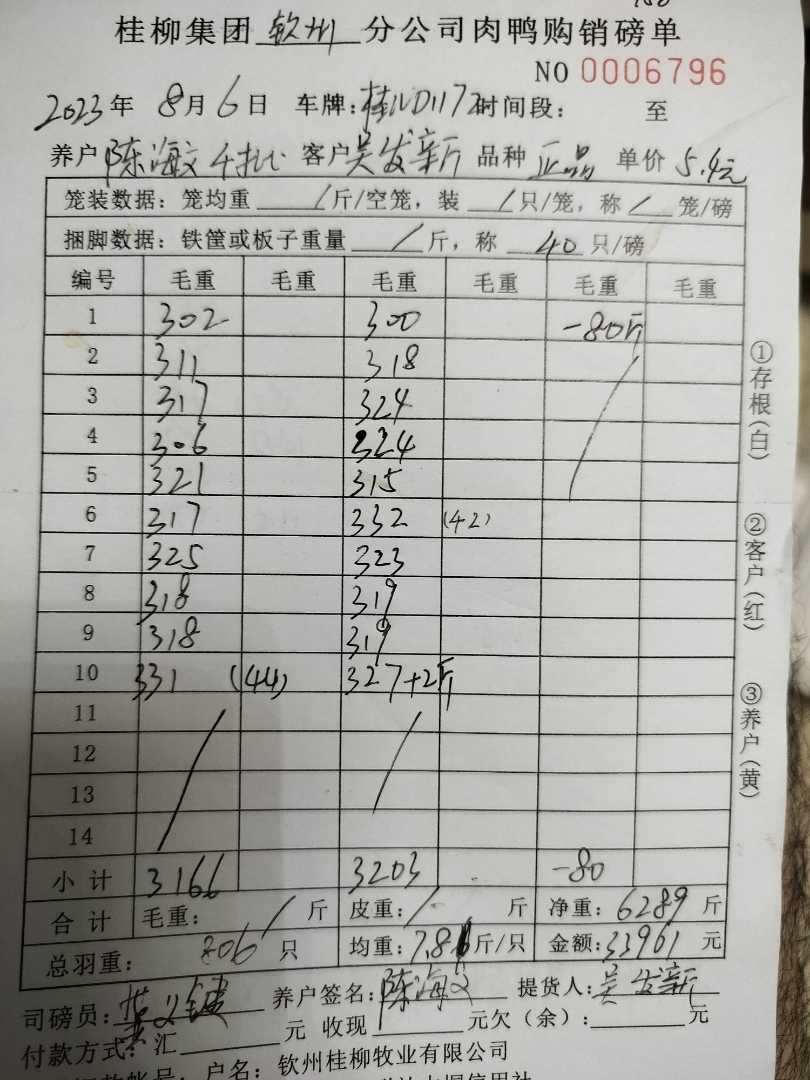 桂柳集团 钦州 分公司肉鸭购销磅单
NO 0006796
2023年 8月6日 车牌:桂ND1172 时间段: 至
养户 陈海文 客户 吴发新 品种 正品 单价 5.4元
笼装数据: 笼均重 / 斤/空笼, 装 / 只/笼, 称 / 笼/磅
捆脚数据: 铁筐或板子重量 / 斤, 称 40 只/磅
编号 毛重 毛重 毛重 毛重 毛重 毛重
1 302 300 -80斤
2 311 318
3 317 324
4 306 324
5 321 315
6 317 332 (42)
7 325 323
8 318 319
9 318 319
10 331 (44) 327+2斤
11
12
13
14
小计 3166 3203 -80
合计 毛重: / 斤 皮重: / 斤 净重: 6289 斤
总羽重: 806 只 均重: 7.8 斤/只 金额: 33961 元
司磅员: 养户签名: 陈海文 提货人: 吴发新
付款方式: 汇 元 收现 元欠(余): 元
户名: 钦州桂柳牧业有限公司
①存根(白)
②客户(红)
③养户(黄)